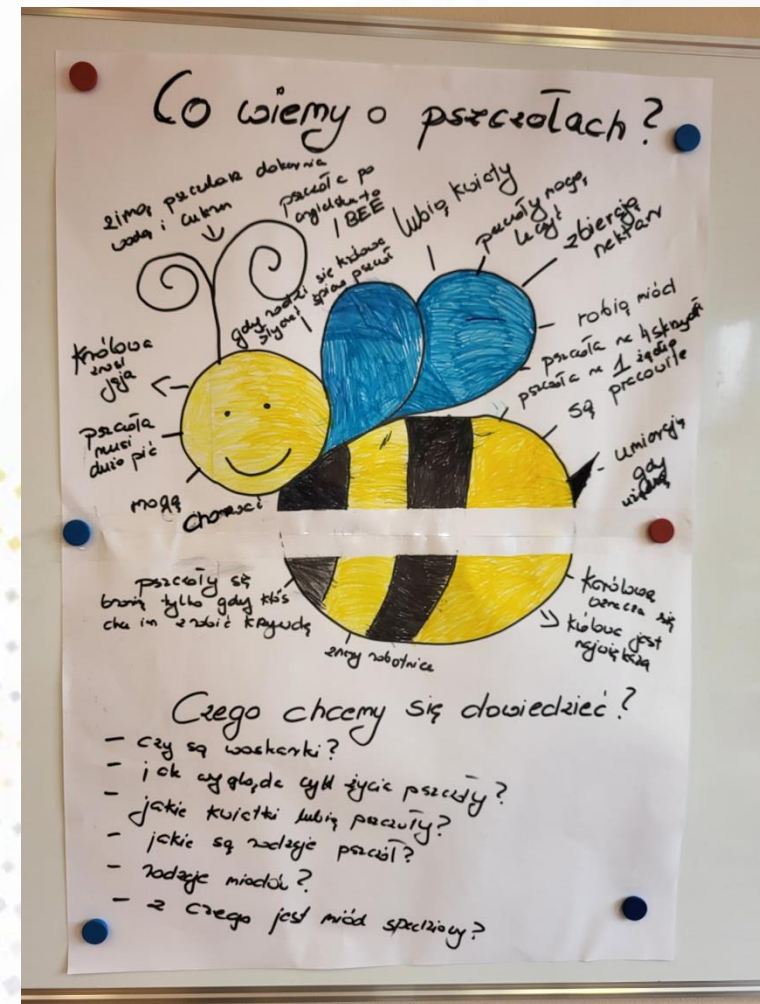 Co wiemy o pszczołach?
zimą pszczelarz dokarmia
wodą i cukrem
pszczoła po
angielsku to
BEE
lubią kwiaty
pszczoły mogą
latać
zbierają
nektar
gdy rodzi się królowa
słychać śpiew pszczół
robią miód
pszczoła ma 4 skrzydła
pszczoła ma 1 żądło
są pracowite
umierają
gdy
użądlą
Królowa
znosi
jaja
pszczoła
musi
dużo pić
mogą
chorować
pszczoły się
bronią tylko gdy ktoś
chce im zrobić krzywdę
znamy robotnice
Królową
oznacza się
królowa jest
największa
Czego chcemy się dowiedzieć?
- czy są woskarki?
- jak wygląda cykl życia pszczoły?
- jakie kwiatki lubią pszczoły?
- jakie są rodzaje pszczół?
- rodzaje miodów?
- z czego jest miód spadziowy?